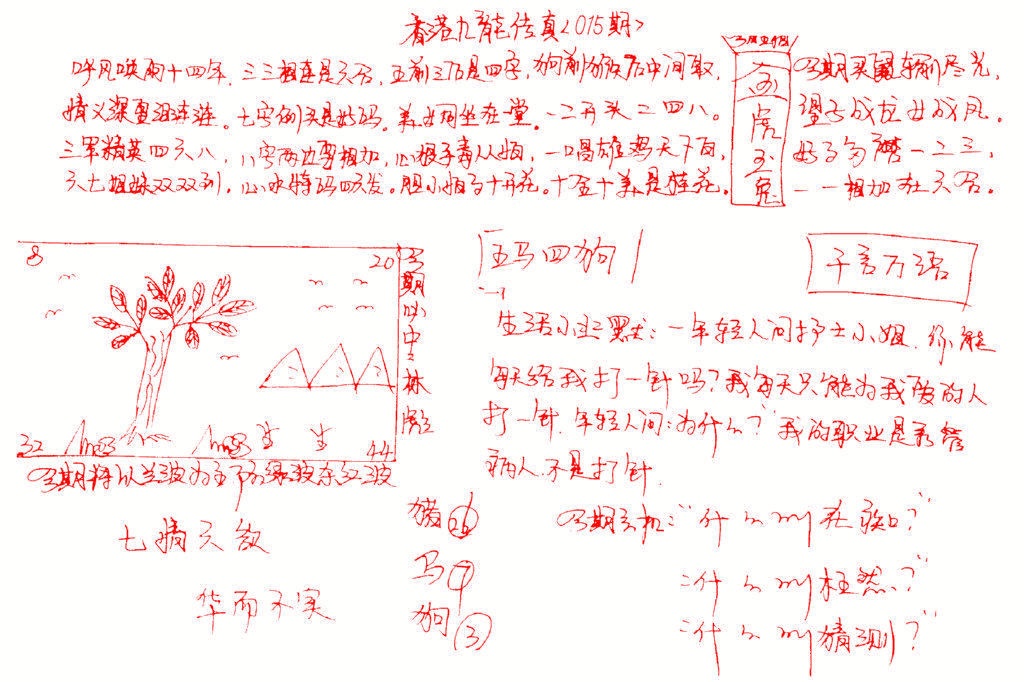 香港九龙传真<015期>
呼风唤雨十四年，三三相连是六合，五前三后是四字，狗前猴后中间取，
情义深重组连连。七字例头是好码。美女同坐在一堂。一二开头二四八。
三军精英四六八，八字两边要相加，心狠手毒人怕，一唱雄鸡天下白，
六七姐妹双双到，心水特码四发。胆小怕事十开花。十全十美是桂花。
今期五个
虎
玉
兔
今期买鼠输尽光，
望子成龙女成凤。
好了一二三，
一一相加在六合。
8
20
32
44
生 生
今期必中：林彪
今期特以兰波为主防绿波杀红波
七情六欲
华而不实
五马四狗
千言万语
生活小幽默：一年轻人问护士小姐，你能
每天给我打一针吗？我每天只能为我爱的人
打一针，年轻人问：为什么？“我的职业是看管
病人不是打针
猪 26
马 7
狗 3
今期玄机：“什么叫在家？”
“什么叫枉然？”
“什么叫猜测？”